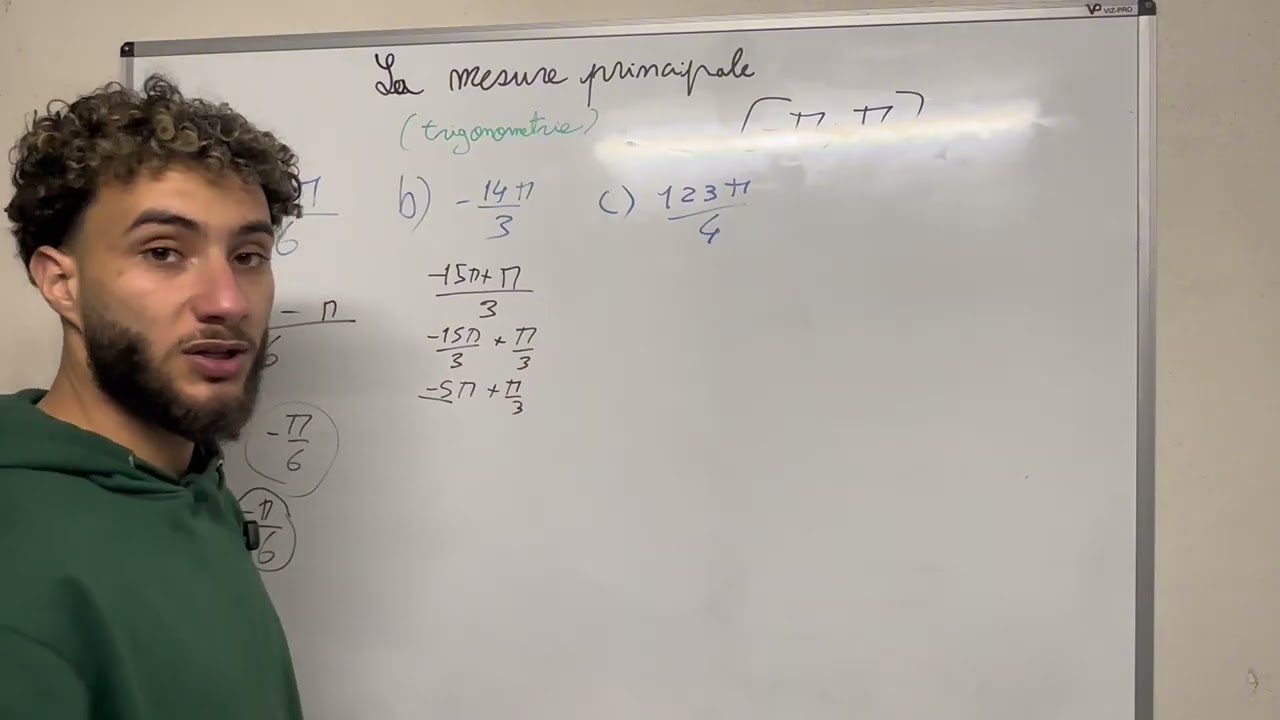 VIZ-PRO
La mesure principale
(trigonometrie)
π, π
π/6
b) -14π/3
c) 123π/4
-15π+π/3
- π/6
-15π/3 + π/3
-5π + π/3
-π/6
-π/6